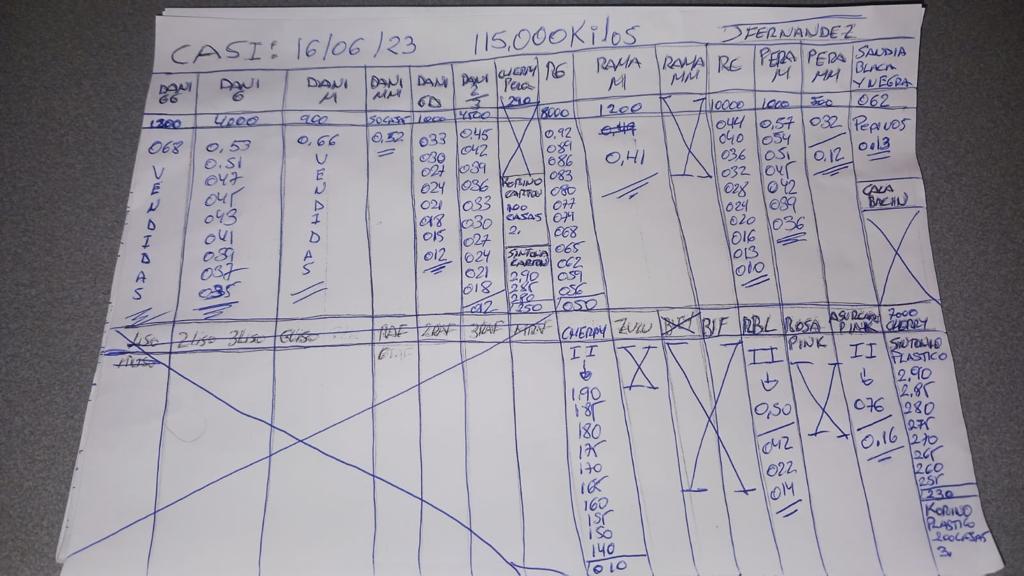 CASI: 16/06/23 115.000Kilos JFERNANDEZ
DANI GG
1200
068
VENDIDAS
DANI G
4000
0,53
0,51
047
045
043
041
039
037
035
DANI M
900
0,66
VENDIDAS
DANI MM
50CAJAS
0,52
DANI GD
1000
033
030
027
024
021
018
015
012
DANI 2 3
4500
0,45
042
039
036
033
030
027
024
021
018
012
CHERRY PERA
290
KORINO CARTON
400 CAJAS
2,
SINTONIA CARTON
290
285
280
250
RG
8000
0,92
089
086
083
080
077
074
068
065
062
059
056
050
RAMA M
1200
0,41
RAMA MM
RC
10000
044
040
036
032
028
024
020
016
013
010
PERA M
1000
0,57
054
051
045
042
039
036
PERA MM
500
032
0,12
SANDIA BLACA Y NEGRA
062
PEPINOS
0,13
CALA BACIN
1LISO 2LISO 3LISO GLISO 1RAF 2RAF 3RAF MRAF
CHERRY
II
190
185
180
175
170
165
160
155
150
140
010
ZULU
BIF
RBL
II
0,50
042
022
014
ROSA PINK
ASURCADO PINK
II
076
0,16
7000
CHERRY
SINTONIA PLASTICO
2.90
2.85
280
275
270
265
260
255
230
KORINO PLASTICO
200CAJAS
3,